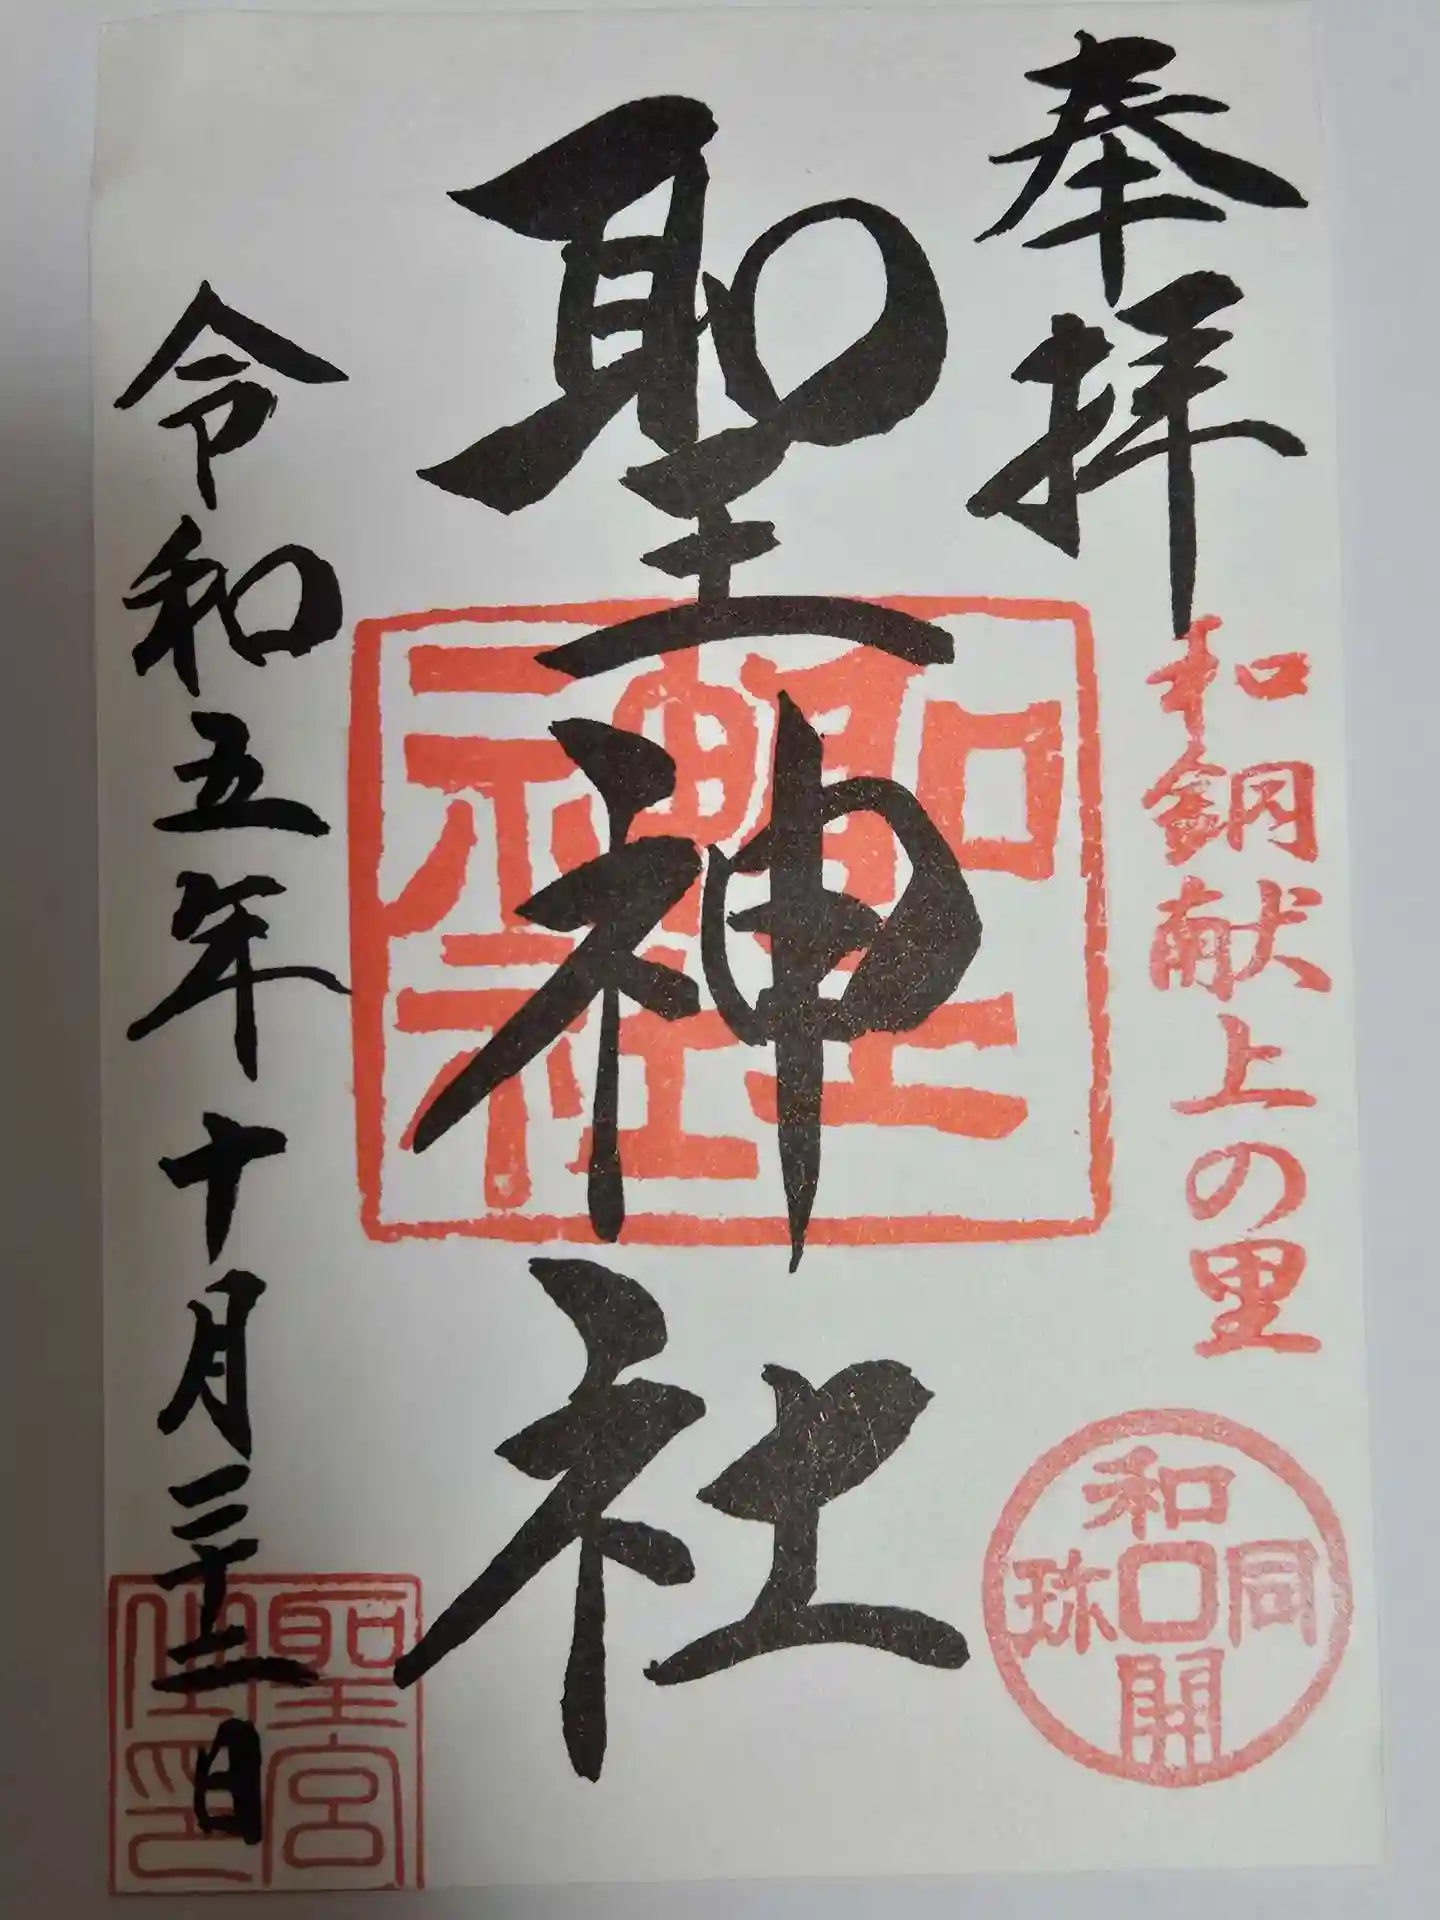 奉拝
和銅献上の里
和同開珎
聖神社
聖神社
令和五年十月二十二日
聖宮
御印